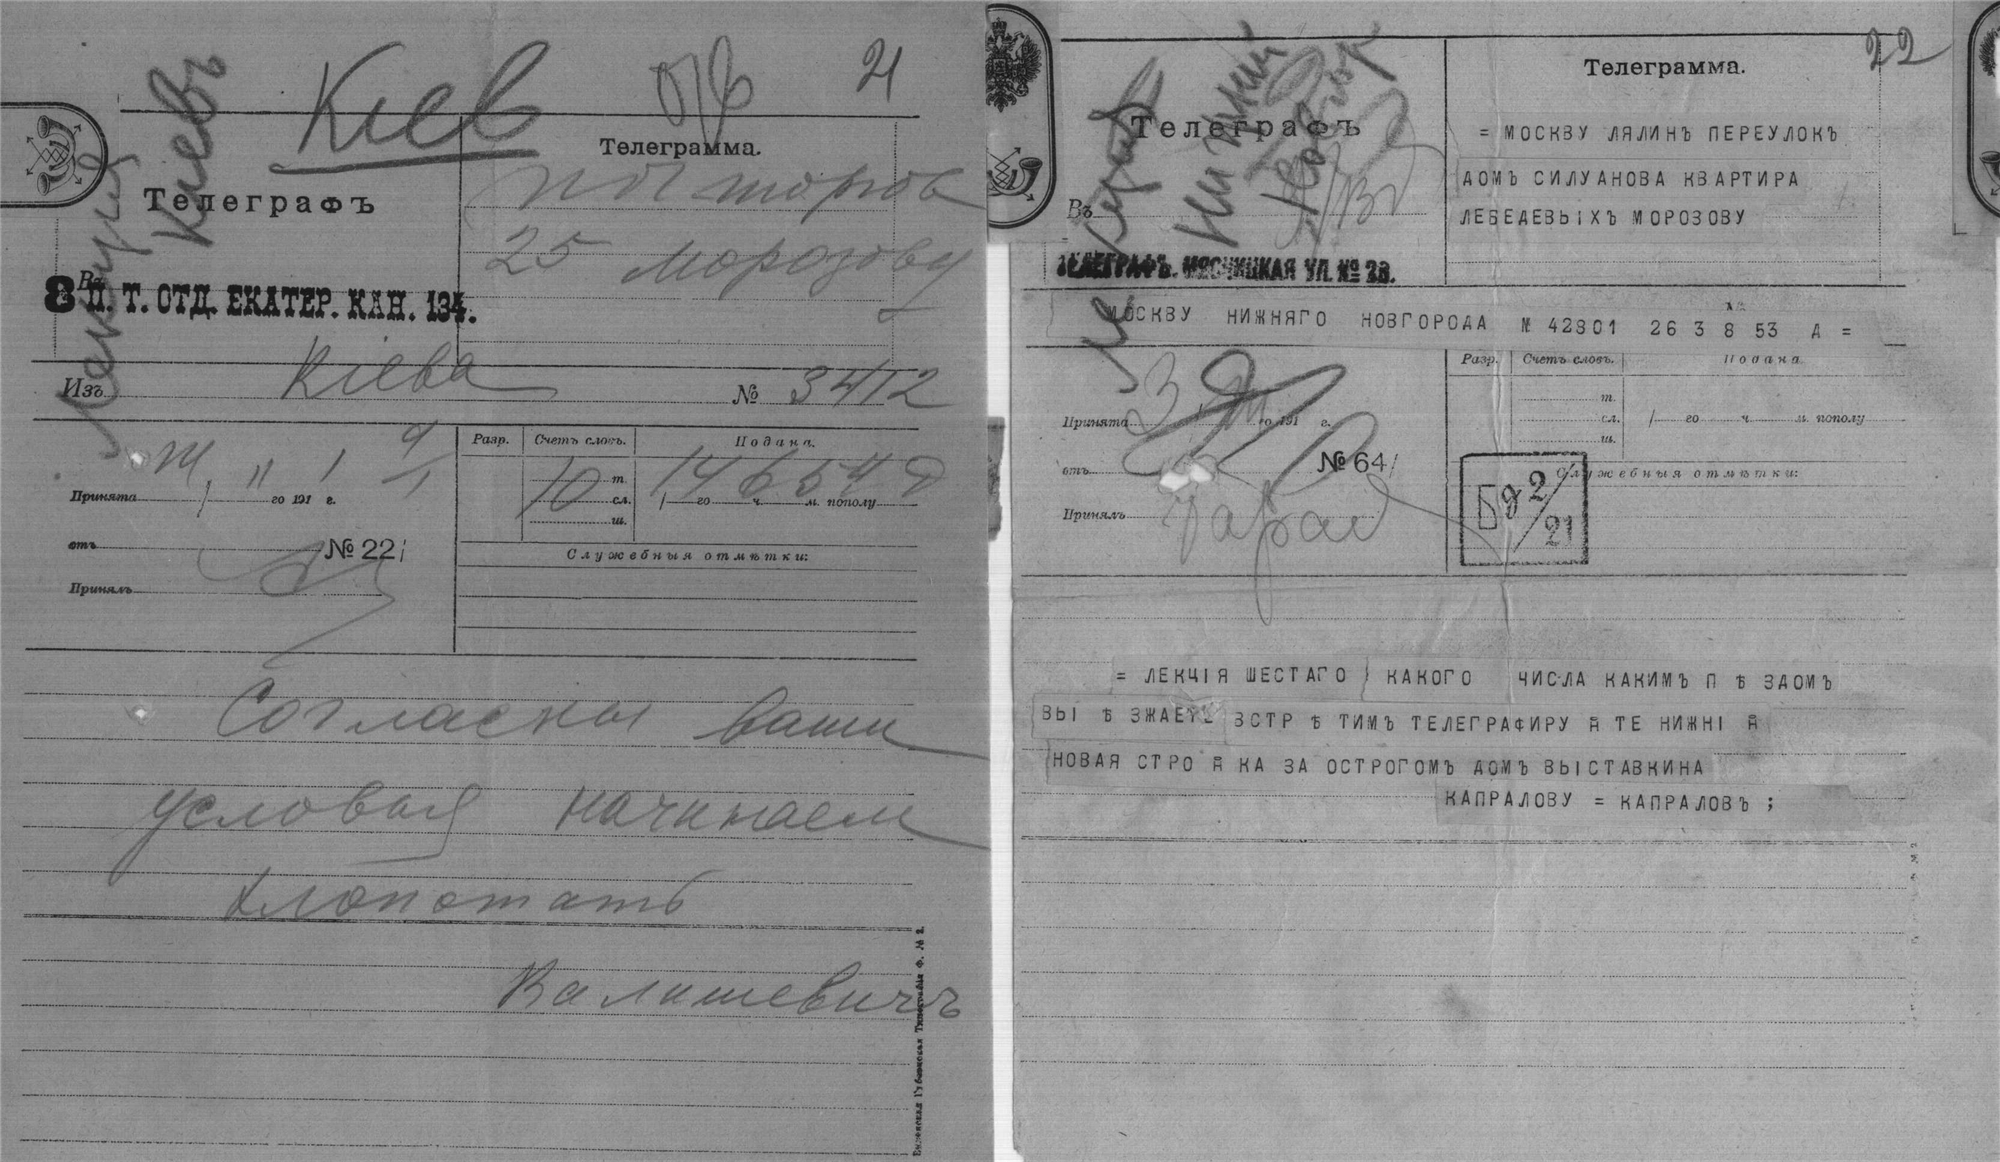 Кіев
21
Лекція
Киевъ
Телеграфъ
Телеграмма.
25 Морозову
Въ
8 П. Т. ОТД. ЕКАТЕР. КАН. 134.
Изъ Кіева № 3412
Разр. Счетъ словъ. Подана.
10 т. сл. ш.
го ч. м. пополу
Принята го 191 г.
отъ № 22
Служебныя отмѣтки:
Принялъ
Согласны ваши
условия начинаем
хлопотать
Валишевичъ
Виленская Губернская Типографія Ф. № 2.
22
Лекция
Нижний
Новгор
Телеграфъ
Телеграмма.
= МОСКВУ ЛЯЛИНЪ ПЕРЕУЛОКЪ
ДОМЪ СИЛУАНОВА КВАРТИРА
ЛЕБЕДЕВЫХЪ МОРОЗОВУ
Въ
ТЕЛЕГРАФЪ. МЯСНИЦКАЯ УЛ. № 23.
МОСКВУ НИЖНЯГО НОВГОРОДА № 42801 26 3 8 53 Д =
Разр. Счетъ словъ. Подана.
т. сл. ш.
го ч. м. пополу
Принята го 191 г.
отъ № 64
Служебныя отмѣтки:
Бд 2/21
Принялъ Тарас
= ЛЕКЦІЯ ШЕСТАГО КАКОГО ЧИСЛА КАКИМЪ П Ѣ ЗДОМЪ
ВЫ Ѣ ЗЖАЕТЕ ВСТР Ѣ ТИМЪ ТЕЛЕГРАФИРУ Й ТЕ НИЖНІ Й
НОВАЯ СТРО Й КА ЗА ОСТРОГОМЪ ДОМЪ ВЫСТАВКИНА
КАПРАЛОВУ = КАПРАЛОВЪ ;